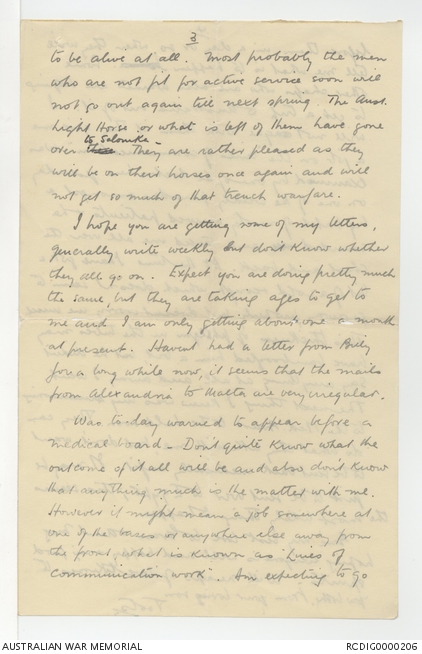 3
to be alive at all. Most probably the men
who are not fit for active service soon will
not go out again till next spring. The Aust.
Light Horse or what is left of them have gone
over to Salonika. They are rather pleased as they
will be on their horses once again and will
not get so much of that trench warfare.
I hope you are getting some of my letters,
generally write weekly but don't know whether
they all go on. Expect you are doing pretty much
the same, but they are taking ages to get to
me and I am only getting about one a month
at present. Havent had a letter from Billy
for a long while now, it seems that the mails
from Alexandria to Malta are very irregular.
Was to-day warned to appear before a
medical board - Don't quite know what the
outcome of it all will be and also don't know
that anything much is the matter with me.
However it might mean a job somewhere at
one of the bases or anywhere else away from
the front, what is known as "Lines of
communication work". Am expecting to go
AUSTRALIAN WAR MEMORIAL
RCDIG0000206